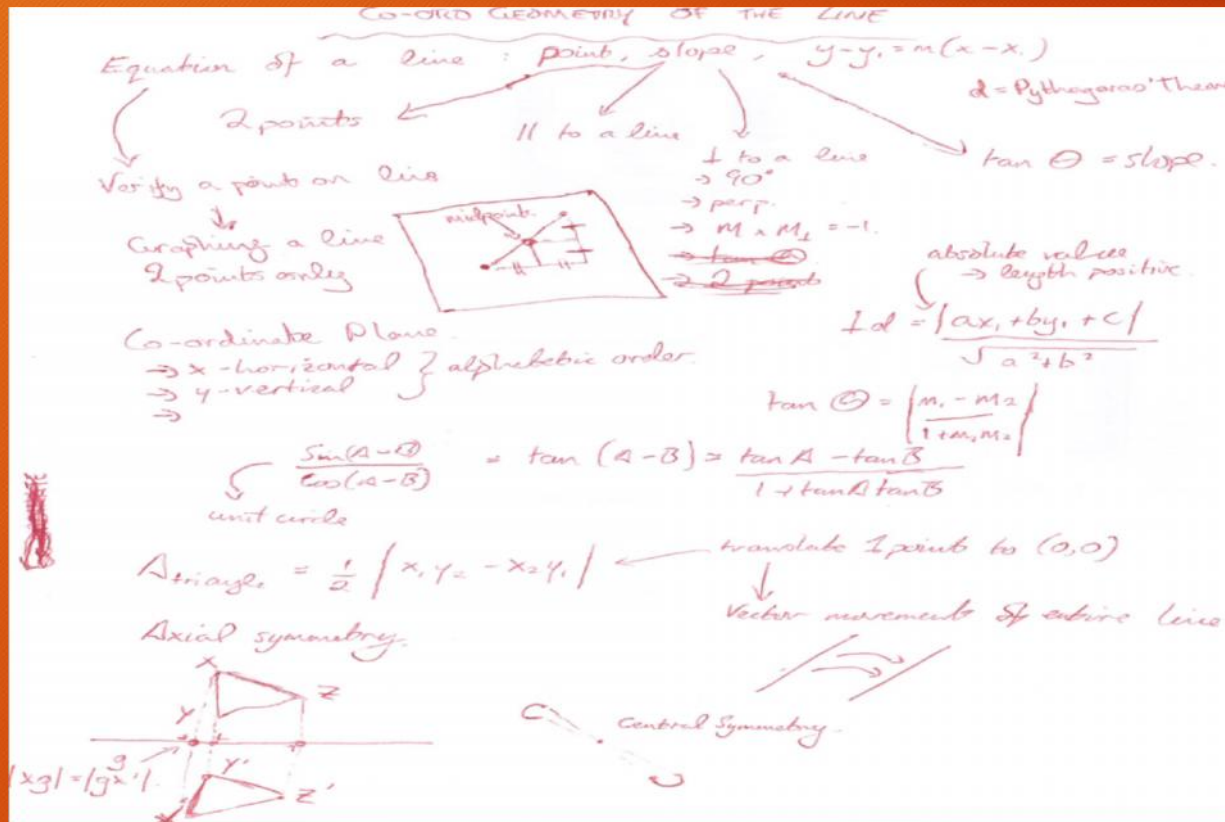 CO-ORD GEOMETRY OF THE LINE
Equation of a line : point, slope, y-y₁ = m(x-x₁)
d = Pythagoras' Theorem
2 points
|| to a line
⊥ to a line
→ 90°
→ perp.
→ m × m⊥ = -1.
→ tan θ
→ 2 points
tan θ = slope.
Verify a point on line
Graphing a line
2 points only
midpoint
absolute value
→ length positive
Co-ordinate Plane
→ x - horizontal } alphabetic order
→ y - vertical
→
⊥d = |ax₁ + by₁ + c| / √a² + b²
tan θ = |m₁ - m₂ / 1 + m₁m₂|
sin(A-B) / cos(A-B) = tan (A-B) = tanA - tanB / 1 + tanA tanB
unit circle
Δtriangle = 1/2 |x₁y₂ - x₂y₁|
translate 1 point to (0,0)
Vector movement of entire line
Axial symmetry.
X
Z
Y
g
|xg| = |gx'|
Y'
Z'
X'
C
Central Symmetry.